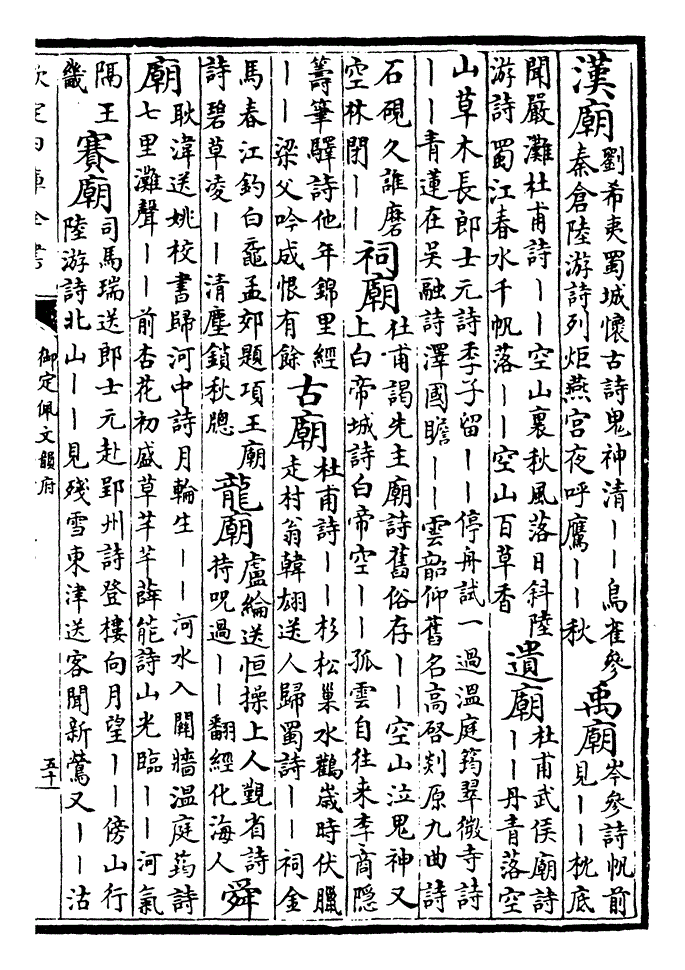 漢廟劉希夷蜀城懷古詩鬼神清丨丨鳥雀參
秦倉陸游詩列炬燕宫夜呼鷹丨丨秋
禹廟岑參詩帆前
見丨丨枕底
聞嚴灘杜甫詩丨丨空山裏秋風落日斜陸
游詩蜀江春水千帆落丨丨空山百草香
遺廟杜甫武侯廟詩
丨丨丹青落空
山草木長郎士元詩季子留丨丨停舟試一過溫庭筠翠微寺詩
丨丨青蓮在吳融詩澤國瞻丨丨雲韶仰舊名高啓剡原九曲詩
石硯久誰磨
空林閉丨丨
祠廟杜甫謁先主廟詩舊俗存丨丨空山泣鬼神又
上白帝城詩白帝空丨丨孤雲自往來李商隱
籌筆驛詩他年錦里經
丨丨梁父吟成恨有餘
古廟杜甫詩丨丨杉松巢水鶴歲時伏臘
走村翁韓翃送人歸蜀詩丨丨祠金
馬春江釣白黿孟郊題項王廟
詩碧草凌丨丨清塵鎖秋牕
龍廟盧綸送恒操上人覲省詩
持呪過丨丨翻經化海人
舜
廟耿湋送姚校書歸河中詩月輪生丨丨河水入關牆溫庭筠詩
七里灘聲丨丨前杏花初盛草芊芊薛能詩山光臨丨丨河氣
隔王
畿
賽廟司馬瑞送郎士元赴郢州詩登樓向月望丨丨傍山行
陸游詩北山丨丨見殘雪東津送客聞新鶯又丨丨沽
欽定四庫全書
御定佩文韻府
五十